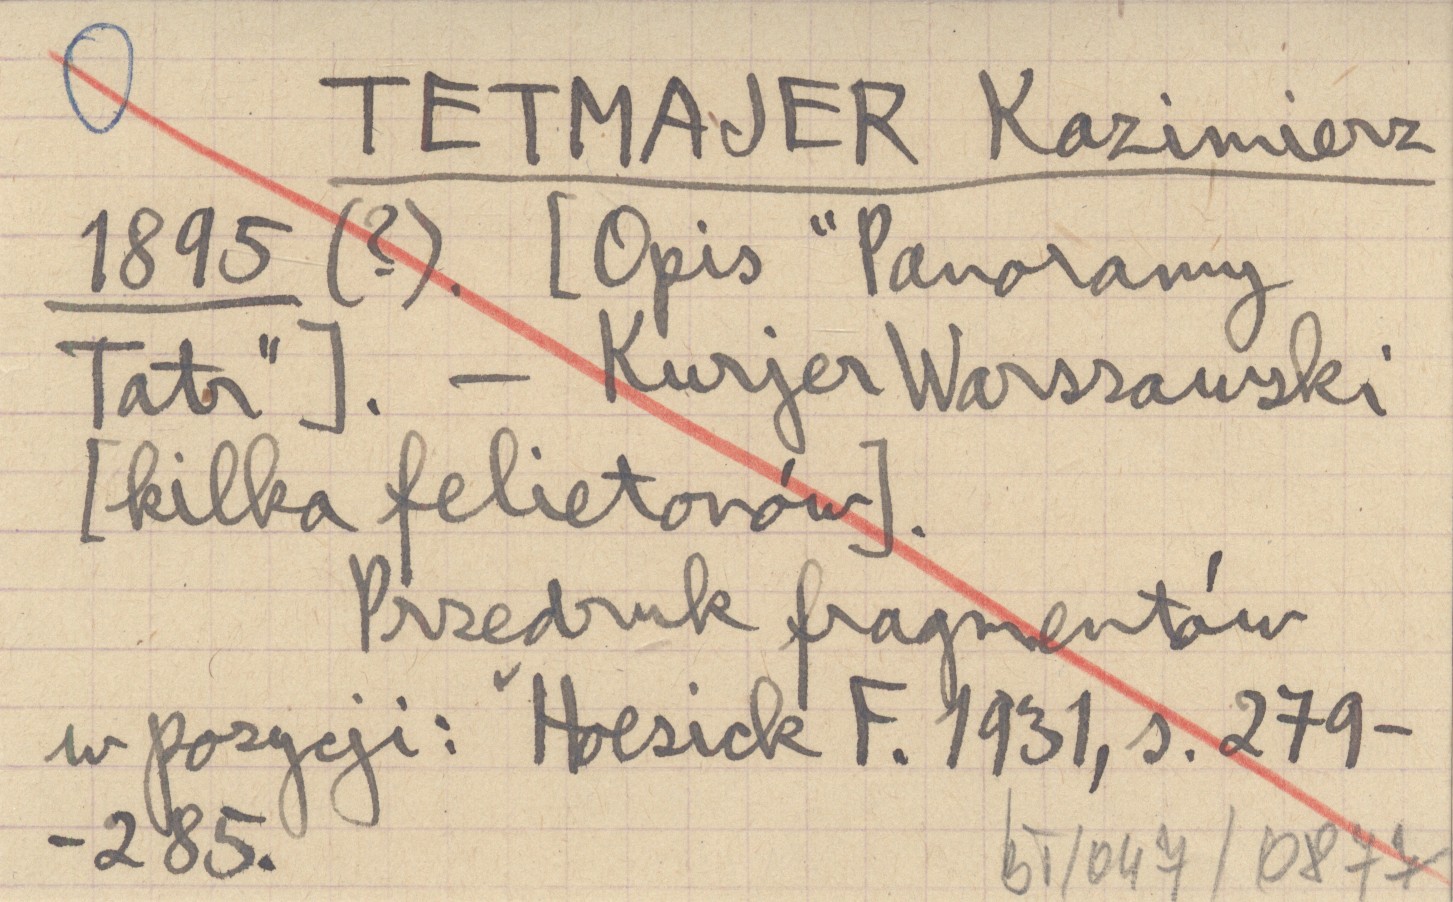 TETMAJER Kazimierz
1895 (?). [Opis "Panoramy
Tatr"]. — Kurjer Warszawski
[kilka felietonów].
Przedruk fragmentów
w pozycji: Hoesick F. 1931, s. 279-
-285.
bT/047/0877